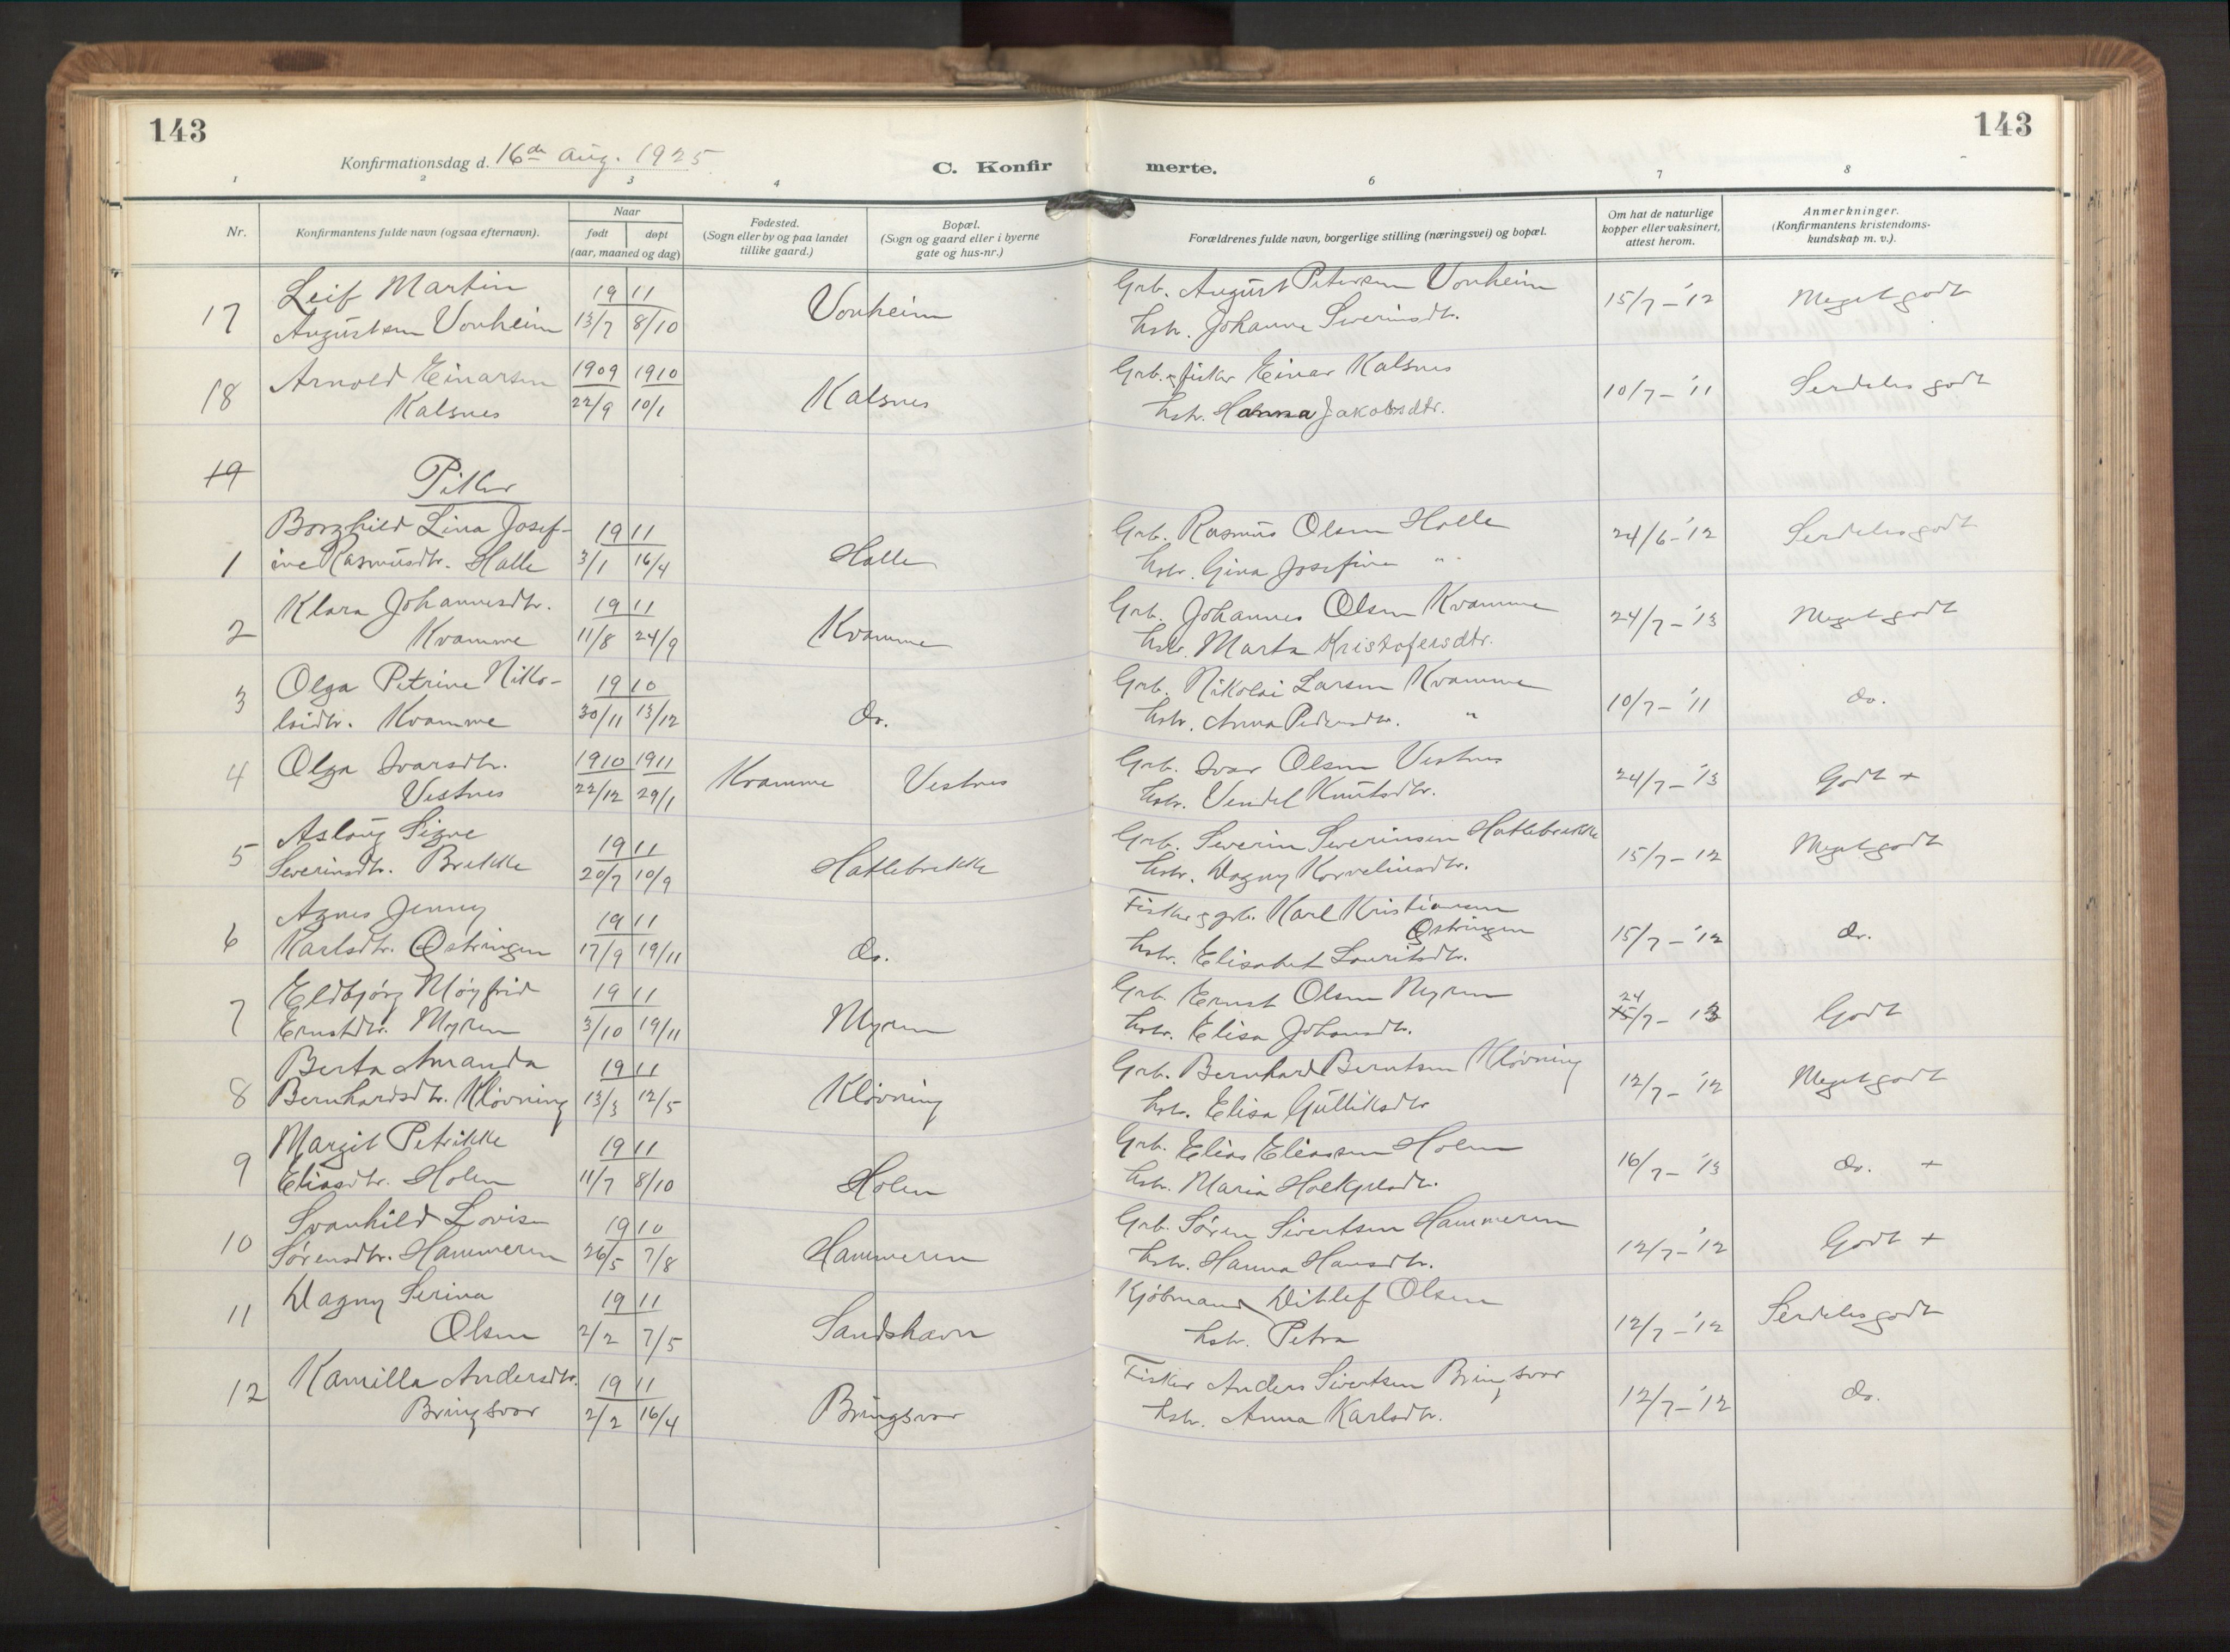 143
143
Konfirmationsdag d. 16de Aug. 1925
C. Konfirmerte.
1 2 3 4 6 7 8
Nr.
Konfirmantens fulde navn (ogsaa efternavn).
Naar
født døpt
(aar, maaned og dag)
Fødested.
(Sogn eller by og paa landet
tillike gaard.)
Bopæl.
(Sogn og gaard eller i byerne
gate og hus-nr.)
Forældrenes fulde navn, borgerlige stilling (næringsvei) og bopæl.
Om hat de naturlige
kopper eller vaksinert,
attest herom.
Anmerkninger.
(Konfirmantens kristendoms-
kundskap m. v.).
17 Leif Martin
Augustsen Vonheim
19 11
13/7 8/10
Vonheim
Grb. August Petersen Vonheim
hstr. Johanne Severinsdtr.
15/7 - '12
Meget godt
18 Arnold Einarsen
Kalsnes
1909 1910
22/9 10/1
Kalsnes
Grb. & fisker Einar Kalsnes
hstr. Hanna Jakobsdtr.
10/7 - '11
Serdeles godt
19
Piker
1 Borghild Lina Josef-
ine Rasmusdtr. Halle
19 11
3/1 16/4
Halle
Grb. Rasmus Olsen Halle
hstr. Gina Josefine "
24/6 - '12
Serdeles godt
2 Klara Johannesdtr.
Kvamme
19 11
11/8 24/9
Kvamme
Grb. Johannes Olsen Kvamme
hstr. Marta Kristofersdtr.
24/7 - '13
Meget godt
3 Olga Petrine Niko-
laidtr. Kvamme
19 10
30/11 13/12
do.
Grb. Nikolai Larsen Kvamme
hstr. Anna Pedersdtr. "
10/7 - '11
do.
4 Olga Ivarsdtr.
Vestnes
1910 1911
22/12 29/1
Kvamme Vestnes
Grb. Ivar Olsen Vestnes
hstr. Vendel Knutsdtr.
24/7 - '13
Godt +
5 Aslaug Signe
Severinsdtr. Brekke
19 11
20/7 10/9
Hatlebrekke
Grb. Severin Severinsen Hatlebrekke
hstr. Dagny Kornelinsdtr.
15/7 - 12
Meget godt
6 Agnes Jenny
Karlsdtr. Østringen
19 11
17/9 19/11
do.
Fisker & grb. Karl Kristiansen
Østringen
hstr. Elisabet Lauritsdtr.
15/7 - '12
do.
7 Eldbjørg Møyfrid
Ernstdtr. Myren
19 11
3/10 19/11
Myren
Grb. Ernst Olsen Myren
hstr. Elisa Johansdtr.
24
15/7 - 13
Godt
8 Berta Amanda
Bernhardsdtr. Kløvning
19 11
13/3 12/5
Kløvning
Grb. Bernhard Berntsen Kløvning
hstr. Elisa Gulliksdtr
12/7 - '12
Meget godt
9 Margit Petrikke
Eliasdtr. Holen
19 11
11/7 8/10
Holen
Grb. Elias Eliassen Holen
hstr. Maria
16/7 - '13
do. +
10 Svanhild Lovise
Sørensdtr. Hammeren
19 10
26/5 7/8
Hammeren
Grb. Søren Sivertsen Hammeren
hstr. Hanna Hansdtr.
12/7 - '12
Godt +
11 Dagny Serina
Olsen
19 11
2/2 7/5
Sandshavn
Kjøbmand Ditlef Olsen
hstr. Petra
12/7 - '12
Serdeles godt
12 Kamilla Andersdtr.
Bringsvor
19 11
2/2 16/4
Bringsvor
Fisker Anders Sivertsen Bringsvor
hstr. Anna Karlsdtr.
12/7 - '12
do.